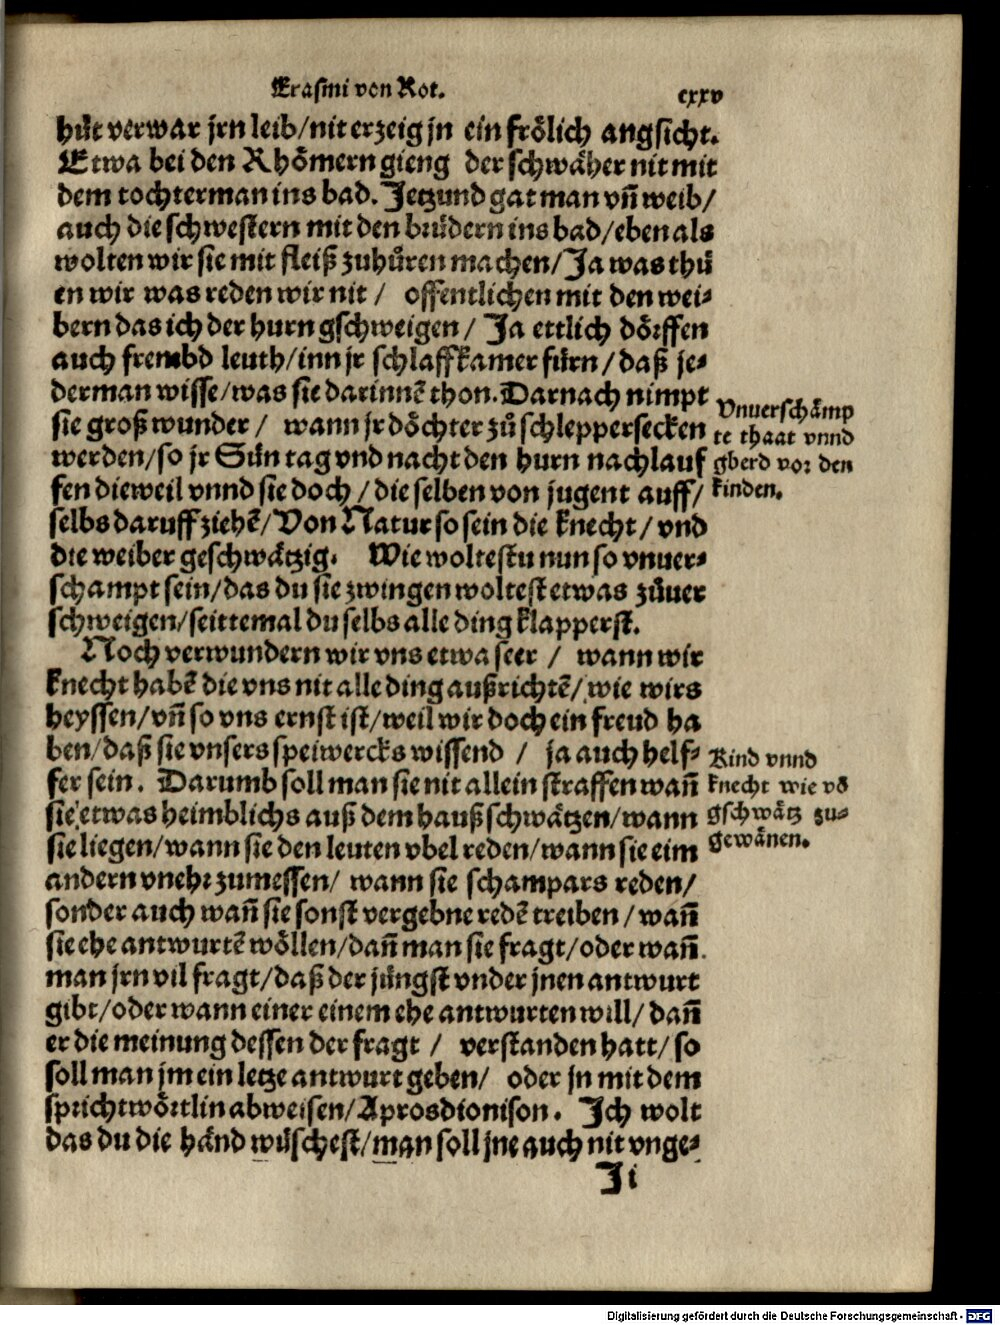 Erasmi von Rot.
cxxv
hüt verwar jrn leib/nit erzeig jn ein frölich angsicht.
Etwa bei den Rhömern gieng der schwäher nit mit
dem tochterman ins bad. Jetzund gat man vñ weib/
auch die schwestern mit den brüdern ins bad/eben als
wolten wir sie mit fleiß zuhůren machen/Ja was thů
en wir was reden wir nit / offentlichen mit den wei-
bern das ich der hurn gschweigen / Ja ettlich dörffen
auch frembd leuth/inn jr schlaffkamer fürn/daß je-
derman wisse/was sie darinnẽ thon. Darnach nimpt
sie groß wunder / wann jr döchter zů schleppersecken
werden/so jr Sün tag vnd nacht den hurn nachlauf
fen dieweil vnnd sie doch/die selben von jugent auff/
selbs daruff ziehẽ/Von Natur so sein die knecht/vnd
die weiber geschwätzig. Wie woltestu nun so vnuer-
schampt sein/das du sie zwingen woltest etwas zůuer
schweigen/seittemal du selbs alle ding klapperst.
Vnuerschämp
te thaat vnnd
gberd vor den
kinden.
Noch verwundern wir vns etwa seer / wann wir
knecht habẽ die vns nit alle ding außrichtẽ/wie wirs
heyssen/vñ so vns ernst ist/weil wir doch ein freud ha
ben/daß sie vnsers speiwercks wissend / ja auch helf-
fer sein. Darumb soll man sie nit allein straffen wañ
sie etwas heimblichs auß dem hauß schwätzen/wann
sie liegen/wann sie den leuten vbel reden/wann sie eim
andern vnehr zumessen/ wann sie schampars reden/
sonder auch wañ sie sonst vergebne redẽ treiben/wañ
sie ehe antwurtẽ wöllen/dañ man sie fragt/oder wañ
man jrn vil fragt/daß der jüngst vnder jnen antwurt
gibt/oder wann einer einem ehe antwurten will/dañ
er die meinung dessen der fragt / verstanden hatt/so
soll man jm ein letze antwurt geben/ oder jn mit dem
sprichtwörtlin abweisen/Aprosdionison. Ich wolt
das du die händ wüschest/man soll jne auch nit vnge-
Kind vnnd
knecht wie võ
gschwätz zu-
gewänen.
Ji
Digitalisierung gefördert durch die Deutsche Forschungsgemeinschaft - DFG